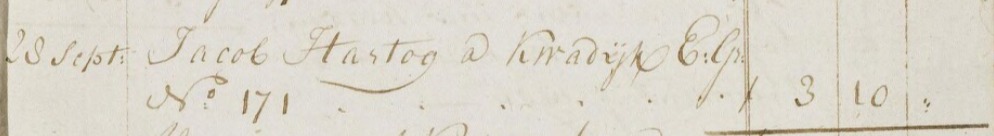 28 Sept: Jacob Hartog a Kwadijk E: Gr:
No 171 . . . . . . / 3 10 "